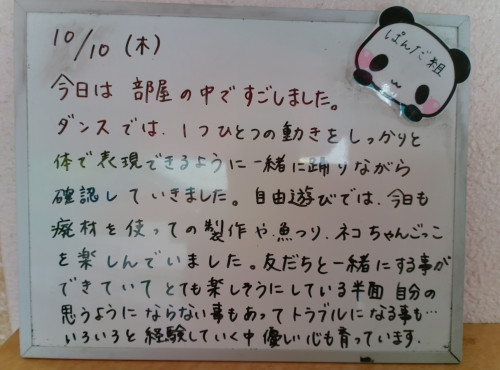 10/10 (木)
ぱんだ組
今日は 部屋の中ですごしました。
ダンスでは、1つひとつの動きをしっかりと
体で表現できるように一緒に踊りながら
確認していきました。自由遊びでは、今日も
廃材を使っての製作や、魚つり、ネコちゃんごっこ
を楽しんでいました。友だちと一緒にする事が
できていてとても楽しそうにしている半面 自分の
思うようにならない事もあってトラブルになる事も…
いろいろと経験していく中 優しい心も育っています.